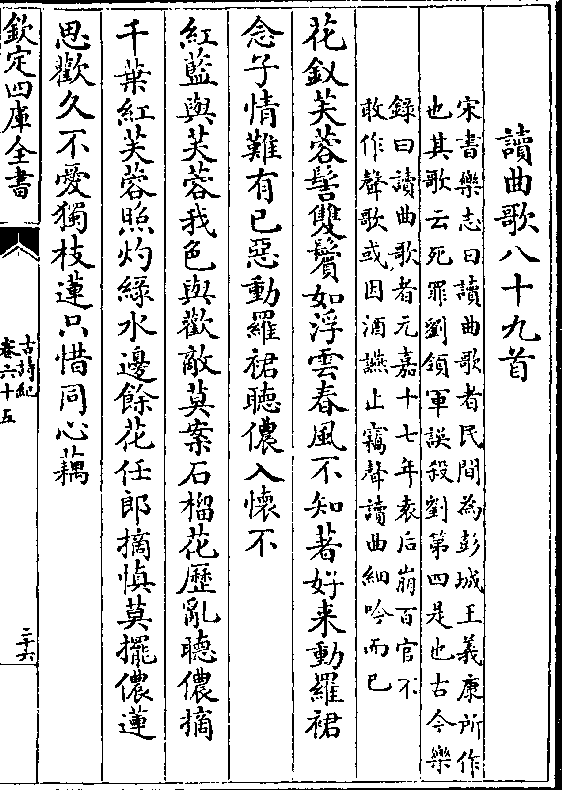 讀曲歌八十九首
宋書樂志曰讀曲歌者民間為彭城王義康所作
也其歌云死罪劉領軍誤殺劉第四是也古今樂
録曰讀曲歌者元嘉十七年袁后崩百官不
敢作聲歌或因酒讌止竊聲讀曲細吟而已
花釵芙蓉髻雙鬢如浮雲春風不知著好来動羅裙
念子情難有已惡動羅裙聽儂入懷不
紅藍與芙蓉我色與歡敵莫案石榴花歷亂聽儂摘
千葉紅芙蓉照灼緑水邊餘花任郎摘慎莫擺儂蓮
思歡久不愛獨枝蓮只惜同心藕
欽定四庫全書
古詩紀
卷六十五
三十六